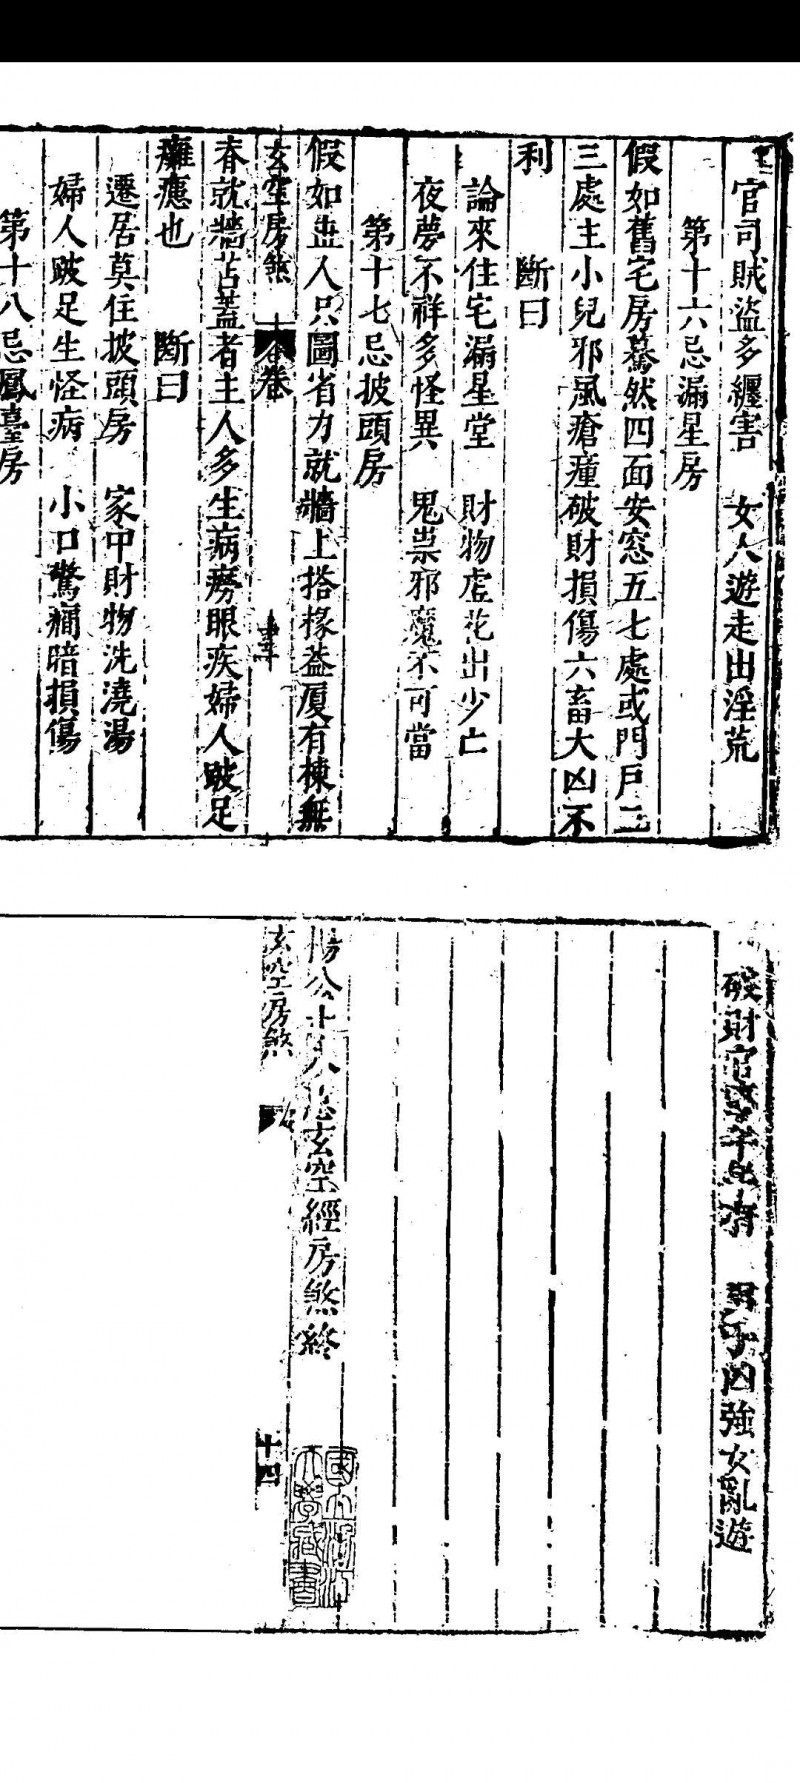 官司賊盜多纏害　女人遊走出淫荒
第十六忌漏星房
假如舊宅房驀然四面安窓五七處或門戶二
三處主小兒邪風瘡瘇破財損傷六畜大凶不
利　斷曰
論來住宅漏星堂　財物虛花出少亡
夜夢不祥多怪異　鬼祟邪魔不可當
第十七忌披頭房
假如人只圖省力就牆上搭椽蓋厦有棟無
玄空房煞　卷
春就牆苫蓋者主人多生病癆眼疾婦人跛足
癱應也　斷曰
遷居莫住披頭房　家中財物洗澆湯
婦人跛足生怪病　小口驚癇暗損傷
第十八忌鳳臺房
破財官　有　男子凶強女亂遊
楊公十八忌玄空經房煞終
玄空房煞
十四
國立浙江大學藏書